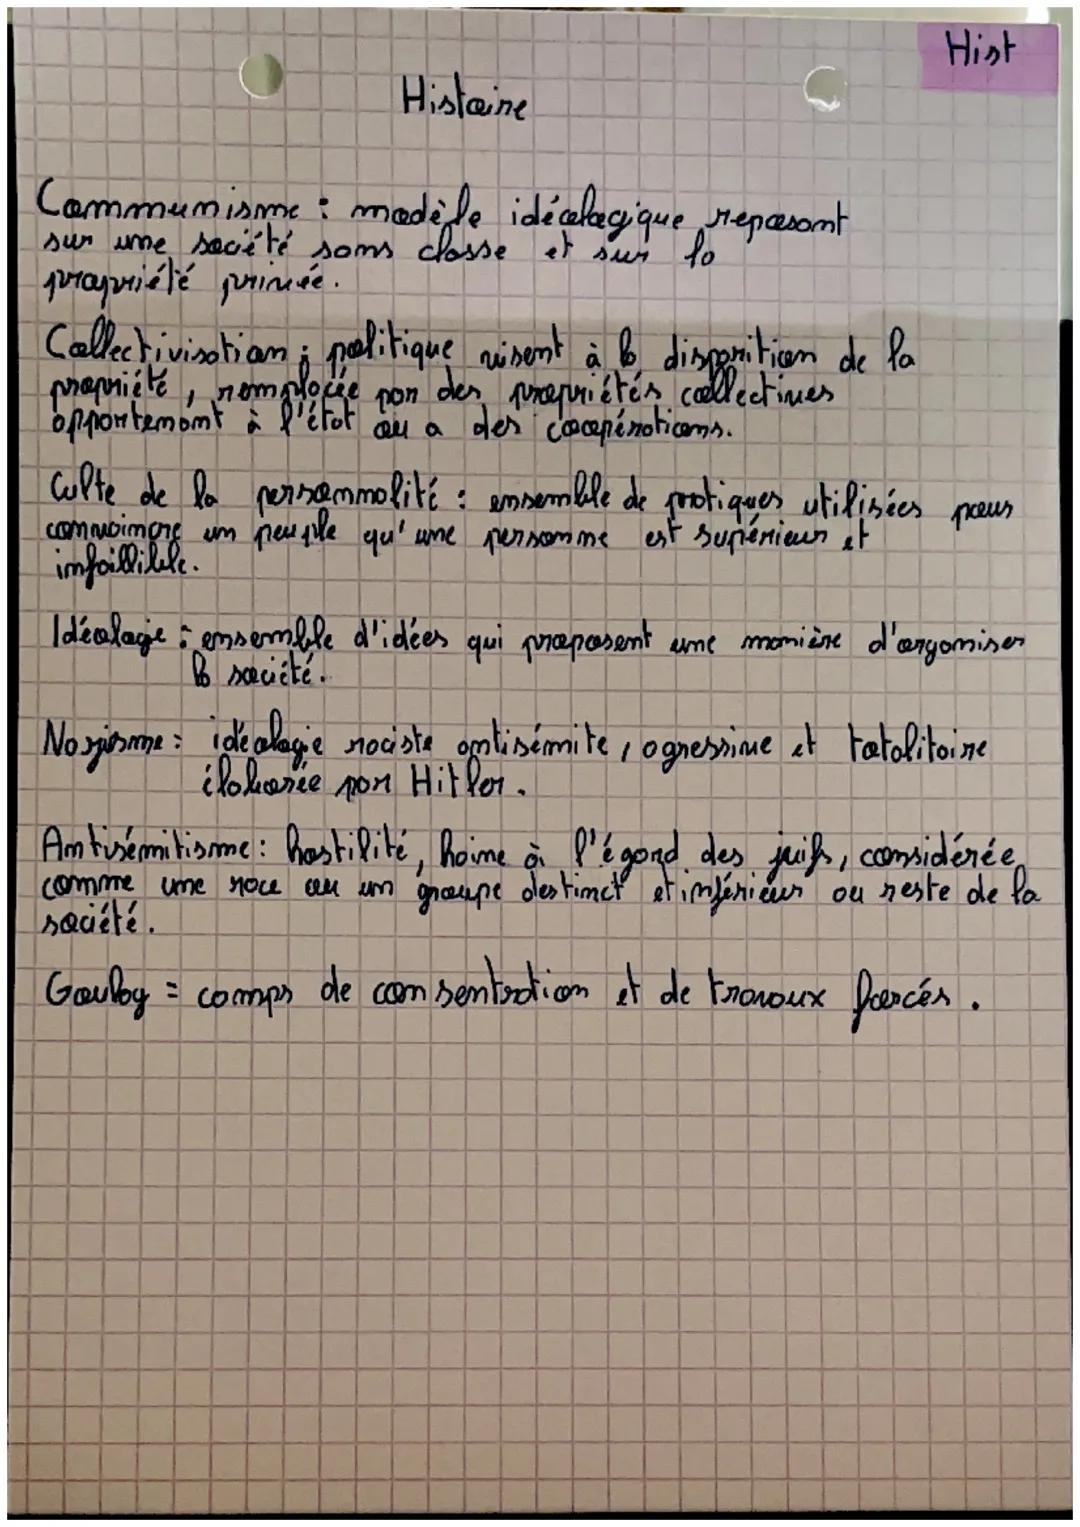 Hist
Histoire
Communisme : modèle idéologique reposant
sur une société sans classe et sur la
propriété privée.
Collectivisation : politique visent à la disparition de la
propriété, remplacée par des propriétés collectives
appartenant à l'état ou a des coopérations.
Culte de la personnalité : ensemble de pratiques utilisées pour
convaincre un peuple qu'une personne est supérieur et
infaillible.
Idéologie : ensemble d'idées qui proposent une manière d'organiser
la société.
Nazisme : idéologie raciste antisémite, agressive et totalitaire
élaborée par Hitler.
Antisémitisme : hostilité, haine à l'égard des juifs, considérée
comme une race ou un groupe destinct et inférieur au reste de la
société.
Goulag = camps de consentration et de travaux forcés.